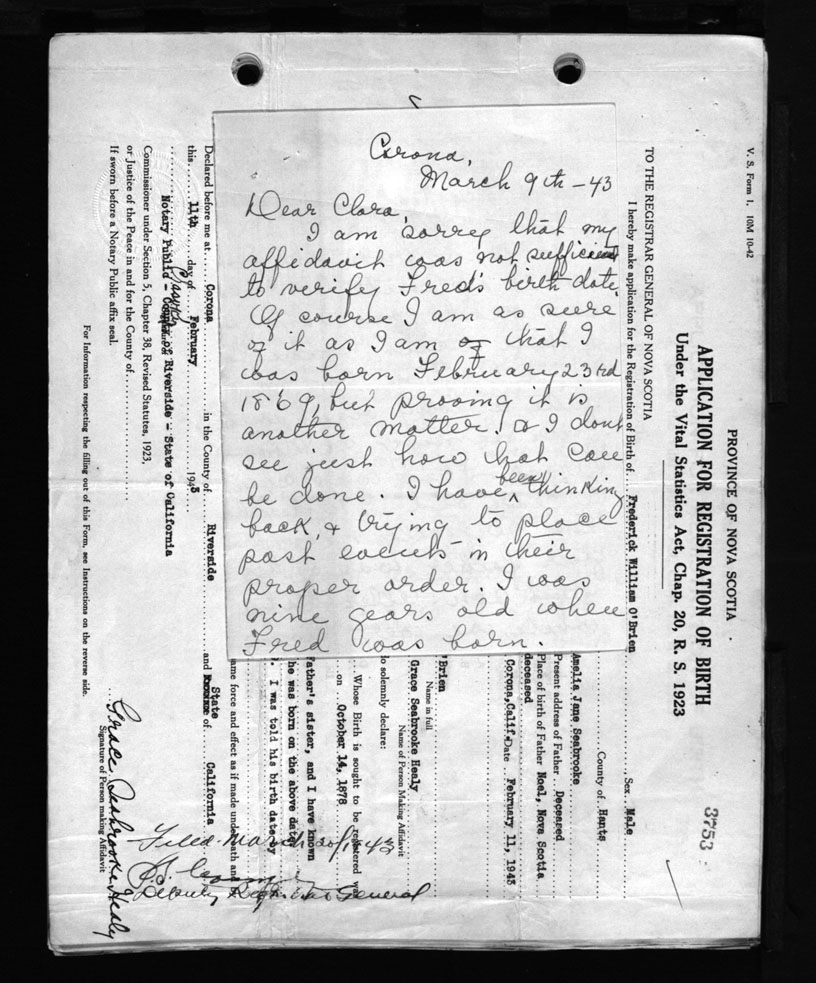 Corona,
March 9th - 43
Dear Clara,
I am sorry that my
affidavit was not sufficient
to verify Fred's birth date.
Of course I am as sure
of it as I am of that I
was born February 23rd
1869, but proving it is
another matter. & I dont
see just how that can
be done. I have been thinking
back, & trying to place
past events in their
proper order. I was
nine years old when
Fred was born.
V. S. Form 1. 10M 10-42
PROVINCE OF NOVA SCOTIA
3753
APPLICATION FOR REGISTRATION OF BIRTH
Under the Vital Statistics Act, Chap. 20, R. S. 1923
TO THE REGISTRAR GENERAL OF NOVA SCOTIA
I hereby make application for the Registration of Birth of Frederick William O'Brien Sex Male
County of Hants
Amelia Jane Seabrooke
Present address of Father Deceased
Place of birth of Father Noel, Nova Scotia
deceased
Corona, Calif. Date February 11, 1943
'Brien
Name in full
Grace Seabrooke Healy
Name of Person Making Affidavit
do solemnly declare:
Whose Birth is sought to be registered was
on October 14, 1878
father's sister, and I have known
he was born on the above date
. I was told his birth date by
ame force and effect as if made under oath and
Declared before me at Corona in the County of Riverside and State of California
this 11th day of February 1943
Notary Public - County of Riverside - State of California
Commissioner under Section 5, Chapter 38, Revised Statutes, 1923,
or Justice of the Peace in and for the County of
If sworn before a Notary Public affix seal.
Grace Seabrooke Healy
Signature of Person making Affidavit
For Information respecting the filling out of this Form, see Instructions on the reverse side.
Filed March 20/1943
Deputy Registrar General